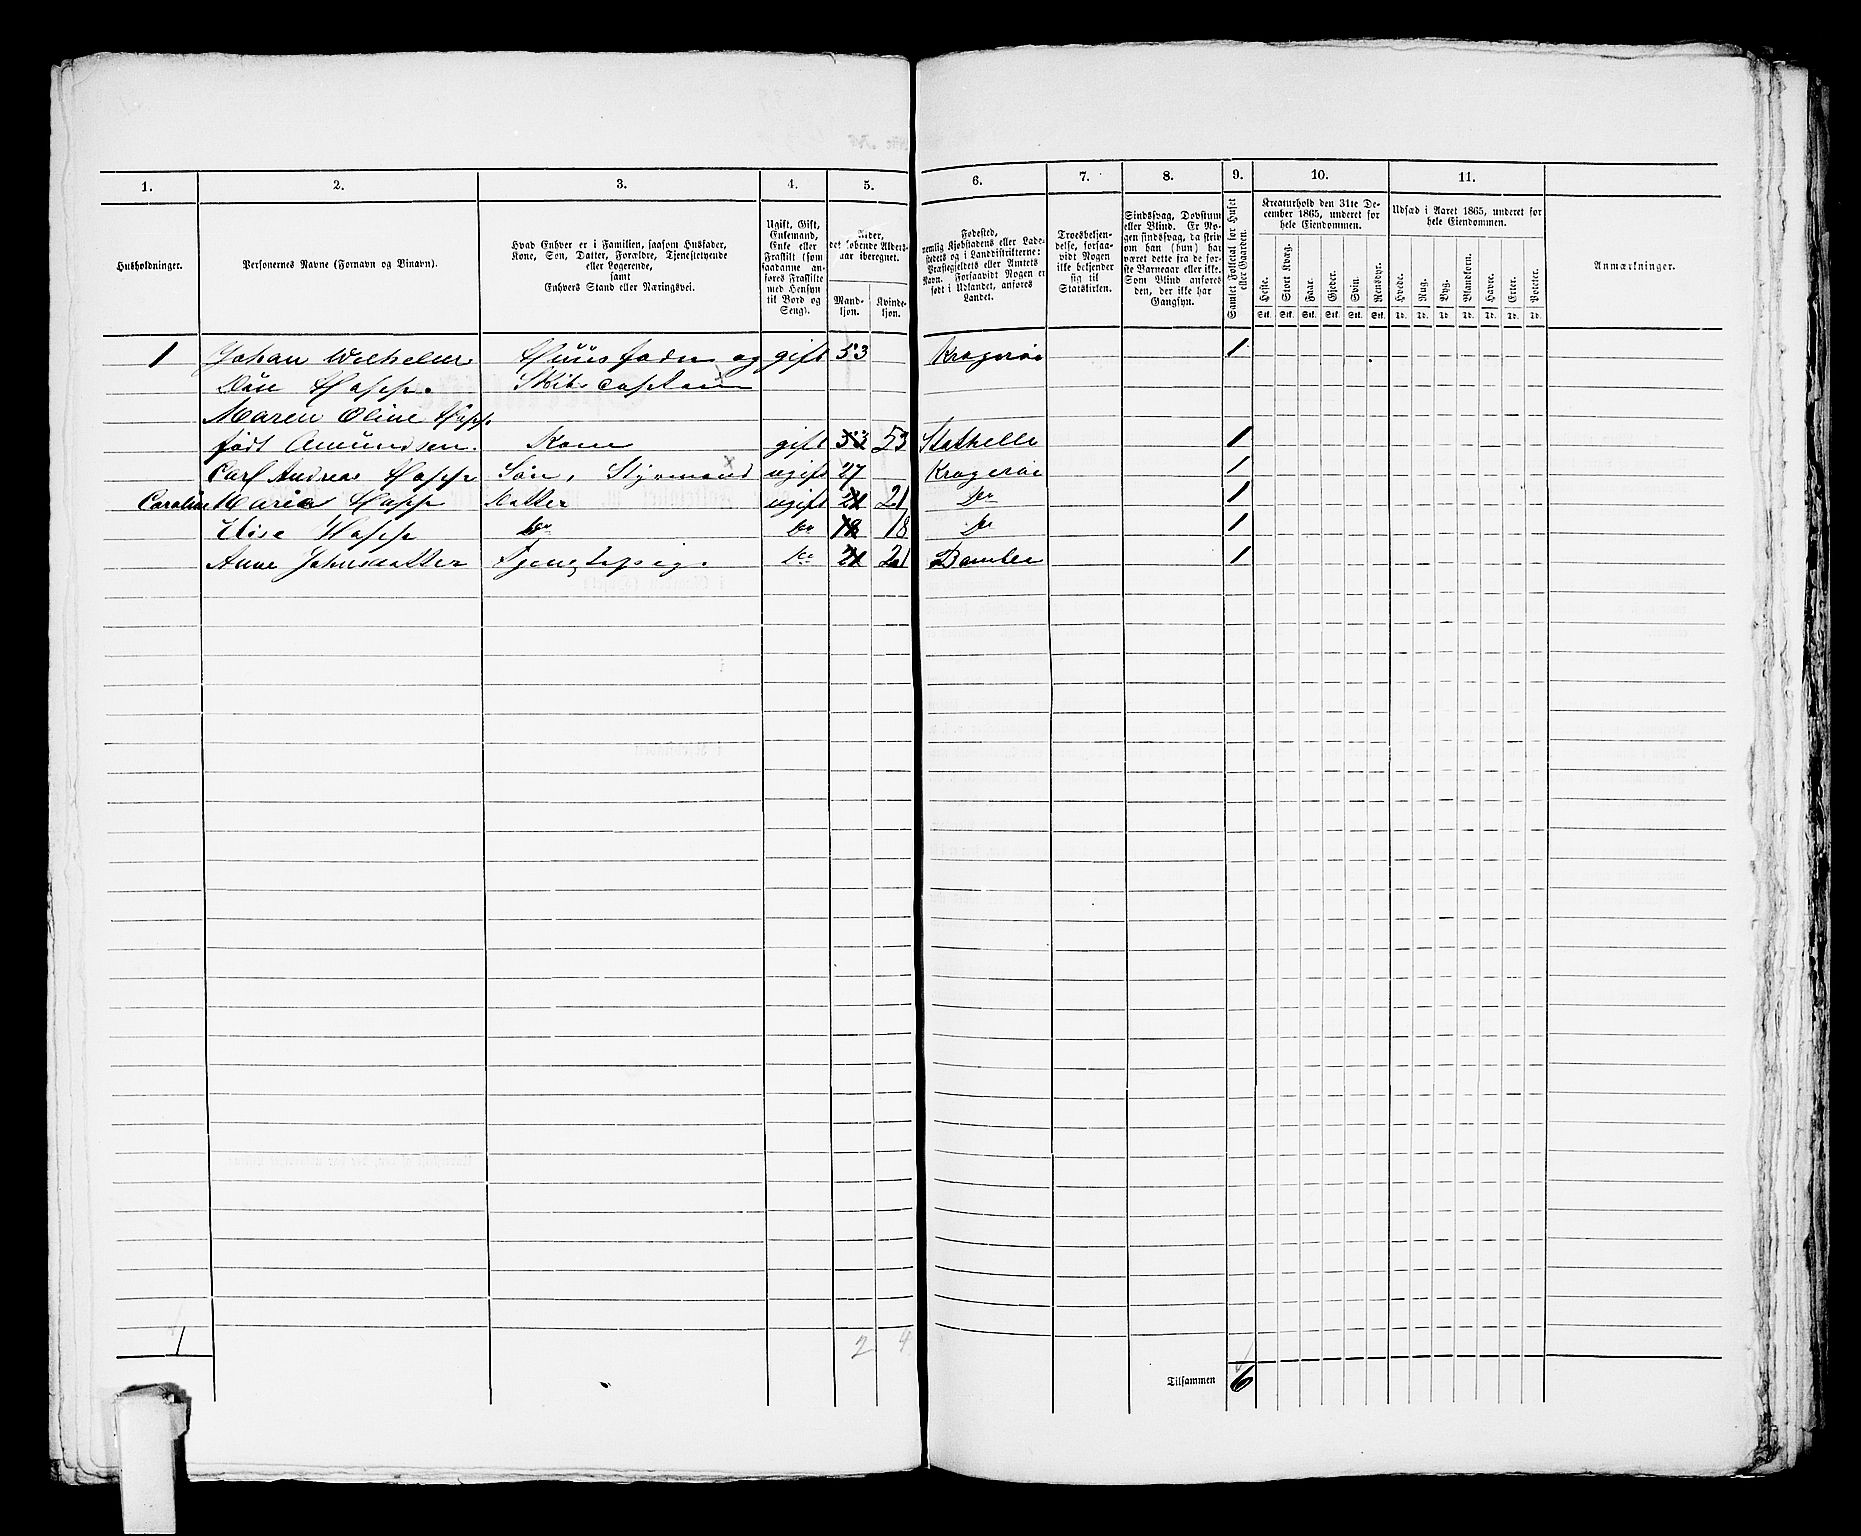 1. 2. 3. 4. 5. 6. 7. 8. 9. 10. 11.
Husholdninger.
Personernes Navne (Fornavn og Binavn).
Hvad Enhver er i Familien, saasom Husfader,
Kone, Søn, Datter, Forældre, Tjenestetyende
eller Logerende,
samt
Enhvers Stand eller Næringsvei.
Ugift, Gift,
Enkemand,
Enke eller
Fraskilt (som
saadanne an-
føres Fraskilte
med Hensyn
til Bord og
Seng).
Alder,
det løbende Alders-
aar iberegnet.
Mand-
kjøn.
Kvinde-
kjøn.
Fødested,
nemlig Kjøbstadens eller Lade-
stedets og i Landdistrikterne:
Præstegjeldets eller Amtets
Navn. Forsaavidt Nogen er
født i Udlandet, anføres
Landet.
Troesbekjen-
delse, forsaa-
vidt Nogen
ikke bekjender
sig til
Statskirken.
Sindssvag, Døvstum
eller Blind. Er No-
gen sindssvag, da skriv
om han (hun) har
været dette fra de før-
ste Barneaar eller ikke.
Som Blind anføres
den, der ikke har
Gangsyn.
Samlet Folketal for Huset
eller Gaarden.
Kreaturhold den 31te De-
cember 1865, underet for
hele Eiendommen.
Heste. Stort Kvæg. Faar. Gjeder. Svin. Rensdyr.
Stk. Stk. Stk. Stk. Stk. Stk.
Udsæd i Aaret 1865, underet for
hele Eiendommen.
Hvede. Rug. Byg. Blandkorn. Havre. Erter. Poteter.
Td. Td. Td. Td. Td. Td. Td.
Anmærkninger.
1 Johan Wilhelm Huusfader og gift 53 Kragerøe 1
Due Happe. Skibscaptain
Maren Oline Happe
født Amundsen. Kone gift 53 53 Stathelle 1
Carl Andreas Happe Søn, Styrmand ugift 27 Kragerøe 1
Caroline Maria Happe Datter ugift 21 21 Do 1
Elise Happe Do Do 18 18 Do 1
Anne Johnsdatter Tjenstepige. Do 21 21 Bamble 1
1 2 4
Tilsammen 6